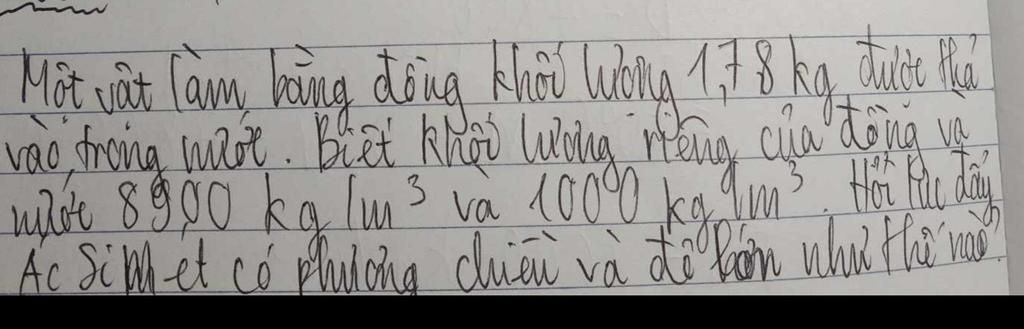 Một vật làm bằng đồng khối lượng 1,78 kg được thả
vào trong nước. Biết khối lượng riêng của đồng và
nước 8900 kg/m³ và 1000 kg/m³. Hỏi lực đẩy
Ác Si mét có phương chiều và độ lớn như thế nào?